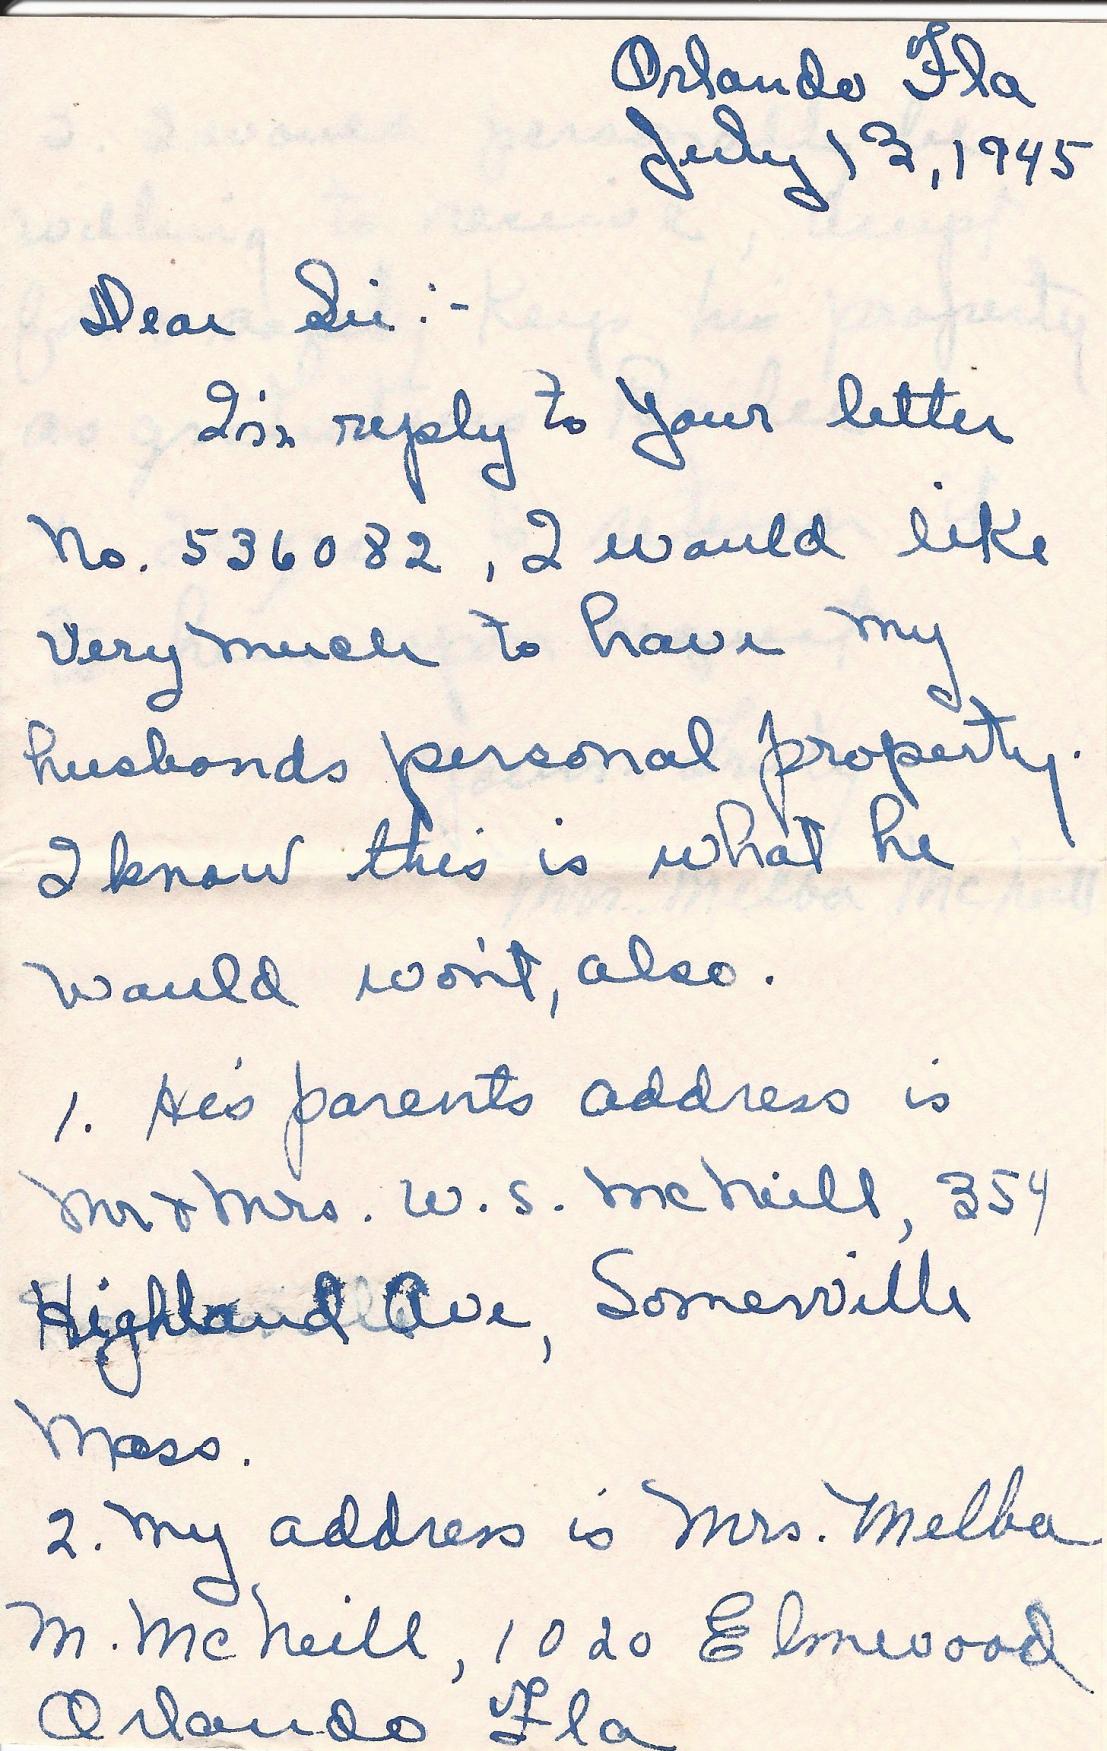 Orlando Fla
July 13, 1945
Dear Sir:-
In reply to your letter
No. 536082, I would like
very much to have my
husbands personal property.
I know this is what he
would won't, also.
1. His parents address is
Mr & Mrs. W. S. McNeill, 354
Highland Ave, Somerville
Mass.
2. My address is Mrs. Melba
M. McNeill, 1020 Elmwood
Orlando Fla